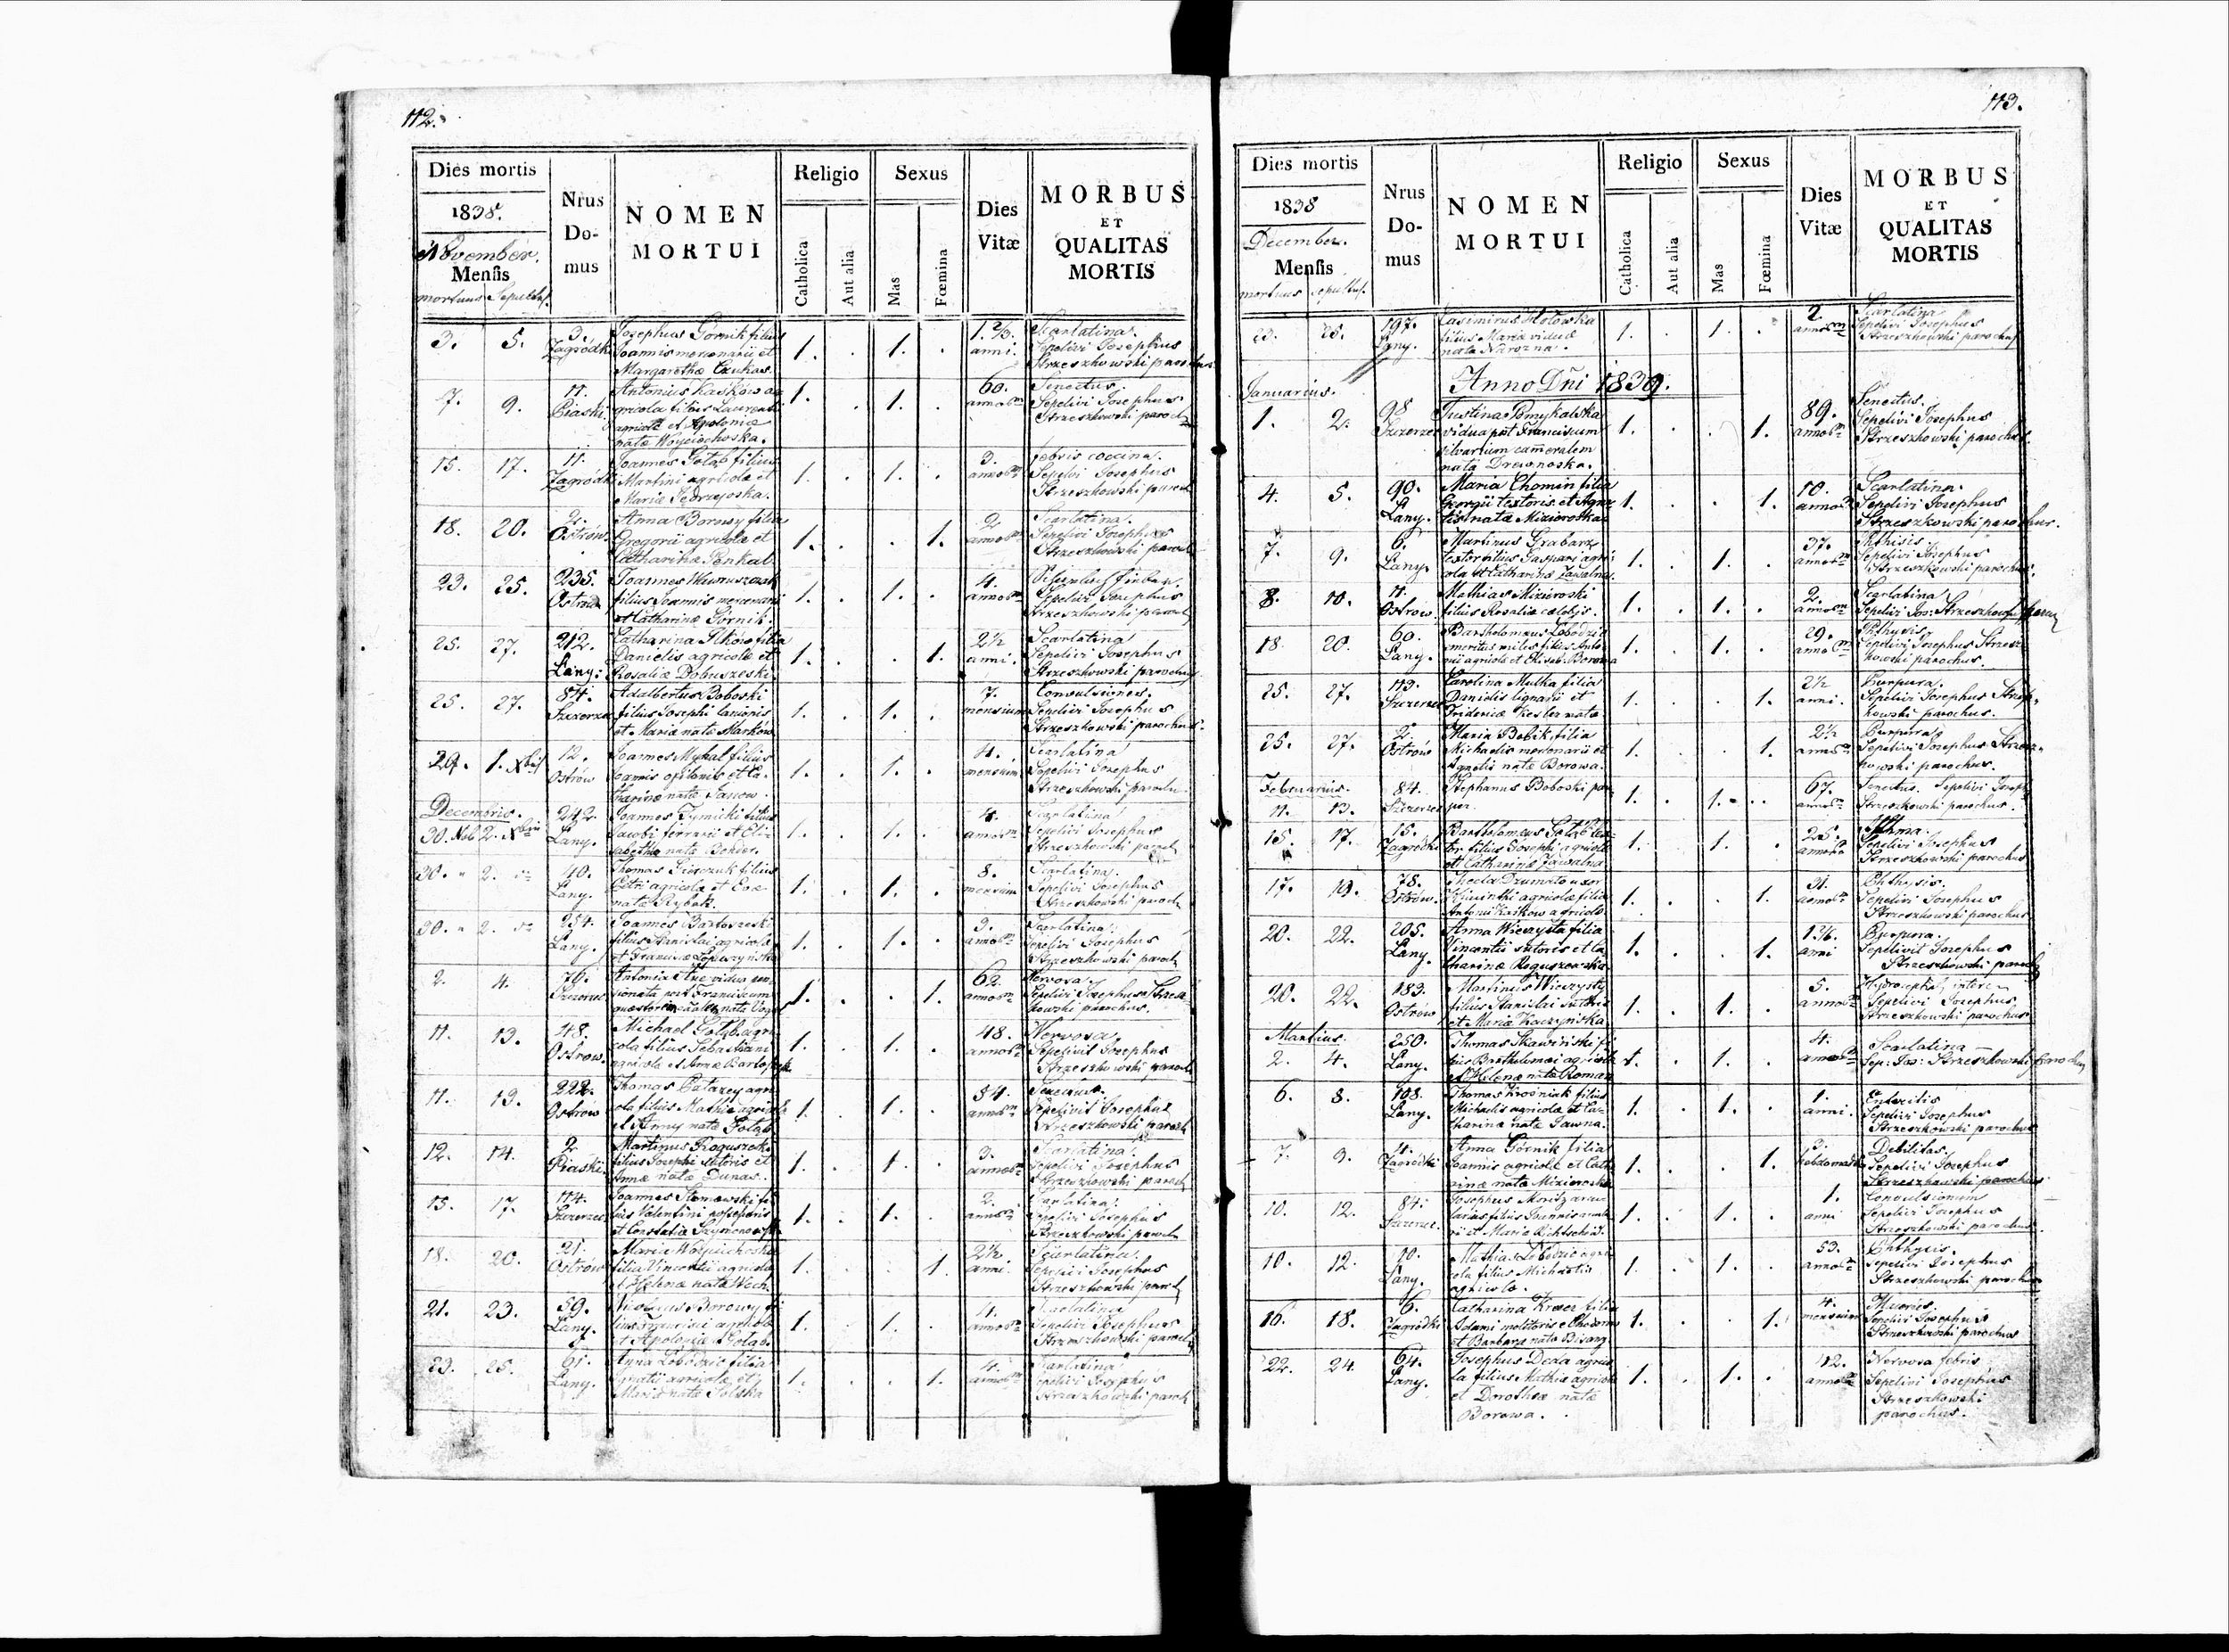 112.
Dies mortis
1838.
November.
Mensis
mortuus Sepultus
Nrus Domus
NOMEN MORTUI
Religio
Catholica
Aut alia
Sexus
Mas
Fœmina
Dies Vitæ
MORBUS ET QUALITAS MORTIS
3. 5. 3. Zagródki Josephus Górnik filius 1. . 1. . 1 2/3. anni. Scarlatina.
Joannis mercenarii et Sepelivi Josephus
Margarethæ Strzeszkowski parochus
7. 9. 11. Piaski Antonius Kaśków 1. . 1. . 60. annorum Senectus.
agricola filius Laurentii Sepelivi Josephus
agricolæ et Apoloniæ Strzeszkowski paroch
natæ Woyciechoska.
15. 17. 11. Zagródki Joannes Gołąb filius 1. . 1. . 3. annorum febris coccina.
Martini agricolæ et Sepelivi Josephus
Mariæ Strzeszkowski paroch
18. 20. 2. Ostrów. Anna Borowy filia 1. . . 1. 2 annorum Scarlatina.
Gregorii agricolæ et Sepelivi Josephus
Catharinæ Strzeszkowski paroch
23. 25. 235. Ostrów Joannes 1. . 1. . 4. annorum
filius Joannis mercenarii Sepelivi Josephus
et Catharinæ Górnik. Strzeszkowski paroch
25. 27. 212. Łany: Catharina filia 1. . . 1. 2½ anni. Scarlatina
Danielis agricolæ et Sepelivi Josephus
Rosaliæ Dobuszeski. Strzeszkowski parochus
25. 27. 84. Szczerzec Adalbertus Boboski 1. . 1. . 7. mensium Convulsiones.
filius Josephi lanionis Sepelivi Josephus
et Mariæ natæ Marków Strzeszkowski parochus.
29. 1. Xbris 12. Ostrów Joannes Mykal filius 1. . 1. . 4. mensium Scarlatina
Joannis opilionis et Ca- Sepelivi Josephus
tharinæ natæ Janow. Strzeszkowski paroch
Decembris.
30. Nob 2. Xbris 242. Łany. Joannes Tymicki filius 1. . 1. . 4. annorum Scarlatina
Jacobi ferrarii et Eli- Sepelivi Josephus
sabethæ natæ Strzeszkowski paroch
30. " 2. 40. Łany. Thomas filius 1. . 1. . 8. mensium Scarlatina
Petri agricolæ et Evæ Sepelivi Josephus
natæ Rybak. Strzeszkowski paroch
30. " 2. 254. Łany. Joannes Bartoszeski 1. . 1. . 3. annorum Scarlatina.
filius Stanislai agricolæ Sepelivi Josephus
et Franciscæ Strzeszkowski paroch
2. 4. 76. Antonia vidua pen- 1. . . 1. 62. annorum Nervosa.
sionata post Franciscum Sepelivi Josephus Strzesz-
natæ kowski parochus.
11. 13. 48. Ostrow. Michael Gołąb agri- 1. . 1. . 48. annorum Nervosa
cola filius Sebastiani Sepelivit Josephus
agricolæ et Annæ Strzeszkowski paroch
11. 13. 222. Ostrów Thomas agri- 1. . 1. . 54. annorum Senectus.
cola filius Mathiæ agricolæ Sepelivit Josephus
et Anny natæ Gołąb Strzeszkowski paroch
12. 14. 2 Piaski. Martinus Roguszeski 1. . 1. . 3. annorum Scarlatina.
filius Josephi sutoris et Sepelivi Josephus
Annæ natæ Dunas. Strzeszkowski paroch
15. 17. 114. Szczerzec Joannes fi- 1. . 1. . 2. annorum Scarlatina.
lius Valentini possessoris Sepelivi Josephus
et Constatiæ Strzeszkowski paroch
18. 20. 21. Ostrów Maria Woyciechoska 1. . . 1. 2½ anni. Scarlatina.
filia Vincentii agricolæ Sepelivi Josephus
et Helenæ natæ Wech. Strzeszkowski paroch
21. 23. 59. Łany. Nicolaus Borowy fi- 1. . 1. . 4. annorum Scarlatina
lius Francisci agricolæ Sepelivi Josephus
et Apoloniæ Gołąb. Strzeszkowski paroch
23. 25. 61. Łany. Anna Lobodzic filia 1. . . 1. 4. annorum Scarlatina
Ignatii agricolæ et Sepelivi Josephus
Mariæ natæ Solska Strzeszkowski paroch
113.
Dies mortis
1838
December.
Mensis
mortuus sepultus.
Nrus Domus
NOMEN MORTUI
Religio
Catholica
Aut alia
Sexus
Mas
Fœmina
Dies Vitæ
MORBUS ET QUALITAS MORTIS
23. 25. 197. Łany. Casimirus 1. . 1. . 2 annorum Scarlatina
filius Mariæ viduæ Sepelivi Josephus
natæ Narozna. Strzeszkowski paroch
Januarius. Anno Dñi 1839.
1. 2. 98 Szczerzec Justina Pomykalska 1. . . 1. 89. annorum Senectus.
vidua post Franciscum Sepelivi Josephus
silvarium cameralem Strzeszkowski parochus.
nata Drewnoska.
4. 5. 90. Łany. Maria Chomin filia 1. . . 1. 10. annorum Scarlatina.
Georgii textoris et Agne- Sepelivi Josephus
tis natæ Mizioroska Strzeszkowski parochus.
7. 9. 6. Łany. Martinus Grabarz 1. . 1. . 37. annorum Phthisis.
textor filius Gaspari agri- Sepelivi Josephus
cola et Catharinæ Zawalna. Strzeszkowski parochus.
8. 10. 11. Ostrow Mathias Mizioroski 1. . 1. . 2. annorum Scarlatina
filius Rosaliæ cælebis. Sepelivi Jos: Strzeszkowski paroc
18 20. 60. Łany. Bartholomæus Lobodzic 1. . 1. . 29. annorum Phthysis.
emeritus miles filius Anto- Sepelivi Josephus Strzesz-
nii agricolæ et Elisab. Borowa kowski parochus.
25. 27. 113. Szczerzec Carolina Mutka filia 1. . . 1. 2½ anni. Purpura.
Danielis lignarii et Sepelivi Josephus Strzesz-
Fridericæ Kesler natæ kowski parochus.
25. 27. 2. Ostrów Maria Bebik, filia 1. . . 1. 2½ annorum Purpura.
Michaelis mercenarii et Sepelivi Josephus Strzesz-
Agnetis natæ Borowa. kowski parochus.
Februarius.
11. 13. 84. Szczerzec Stephanus Boboski pau- 1. . 1. . 67. annorum Senectus. Sepelivi Joseph
per. Strzeszkowski parochus.
15. 17. 15. Zagródki Bartholomæus Gołąb tex- 1. . 1. . 25. annorum Asthma.
tor filius Josephi agricolæ Sepelivi Josephus
et Catharinæ Zawalna Strzeszkowski parochus
17. 19. 78. Ostrów. Thecla uxor 1. . . 1. 31. annorum Phthysis.
agricolæ filia Sepelivi Josephus
Antonii Kaśkow agricolæ Strzeszkowski parochus
20. 22. 205. Łany. Anna Wieczysta filia 1. . . 1. 1 2/6. anni Purpura.
Vincentii sutoris et Ca- Sepelivit Josephus
tharinæ Roguszeska. Strzeszkowski paroch
20. 22. 183. Ostrów Martinus Wieczysty 1. . 1. . 5. annorum
filius Stanislai sutoris Sepelivi Josephus
et Mariæ Kaczynska Strzeszkowski parochus
Martius.
2. 4. 250. Łany. Thomas Skawiński fi- 1. . 1. . 4. annorum Scarlatina
lius Bartholomæi agricolæ Sep: Jos: Strzeszkowski paroch
et Helenæ natæ Roman
6. 8. 108. Łany. Thomas Krośniak filius 1. . 1. . 1. anni. Enteritis
Michaelis agricolæ et Ca- Sepelivi Josephus
tharinæ natæ Jawna. Strzeszkowski parochus
7. 9. 4. Zagródki Anna Górnik filia 1. . . 1. 3. hebdomad Debilitas.
Joannis agricolæ et Cath- Sepelivi Josephus
arinæ natæ Mizioroska Strzeszkowski parochus
10. 12. 84. Szczerzec. Josephus Moritz 1. . 1. . 1. anni Convulsionum
filius Joannis Sepelivi Josephus
et Mariæ Strzeszkowski parochus.
10. 12. 10. Łany. Mathias Lobodzic agri- 1. . 1. . 53. annorum Phthysis.
cola filius Michaelis Sepelivi Josephus
agricolæ. Strzeszkowski parochus
16. 18. 6. Zagródki Catharina filia 1. . . 1. 4. mensium
Adami molitoris Sepelivi Josephus
et Barbaræ natæ Strzeszkowski parochus
22. 24. 64. Łany. Josephus Deda agrico- 1. . 1. . 42. annorum Nervosa febris
la filius Mathiæ agricolæ Sepelivi Josephus
et Dorotheæ natæ Strzeszkowski
Borowa. parochus.